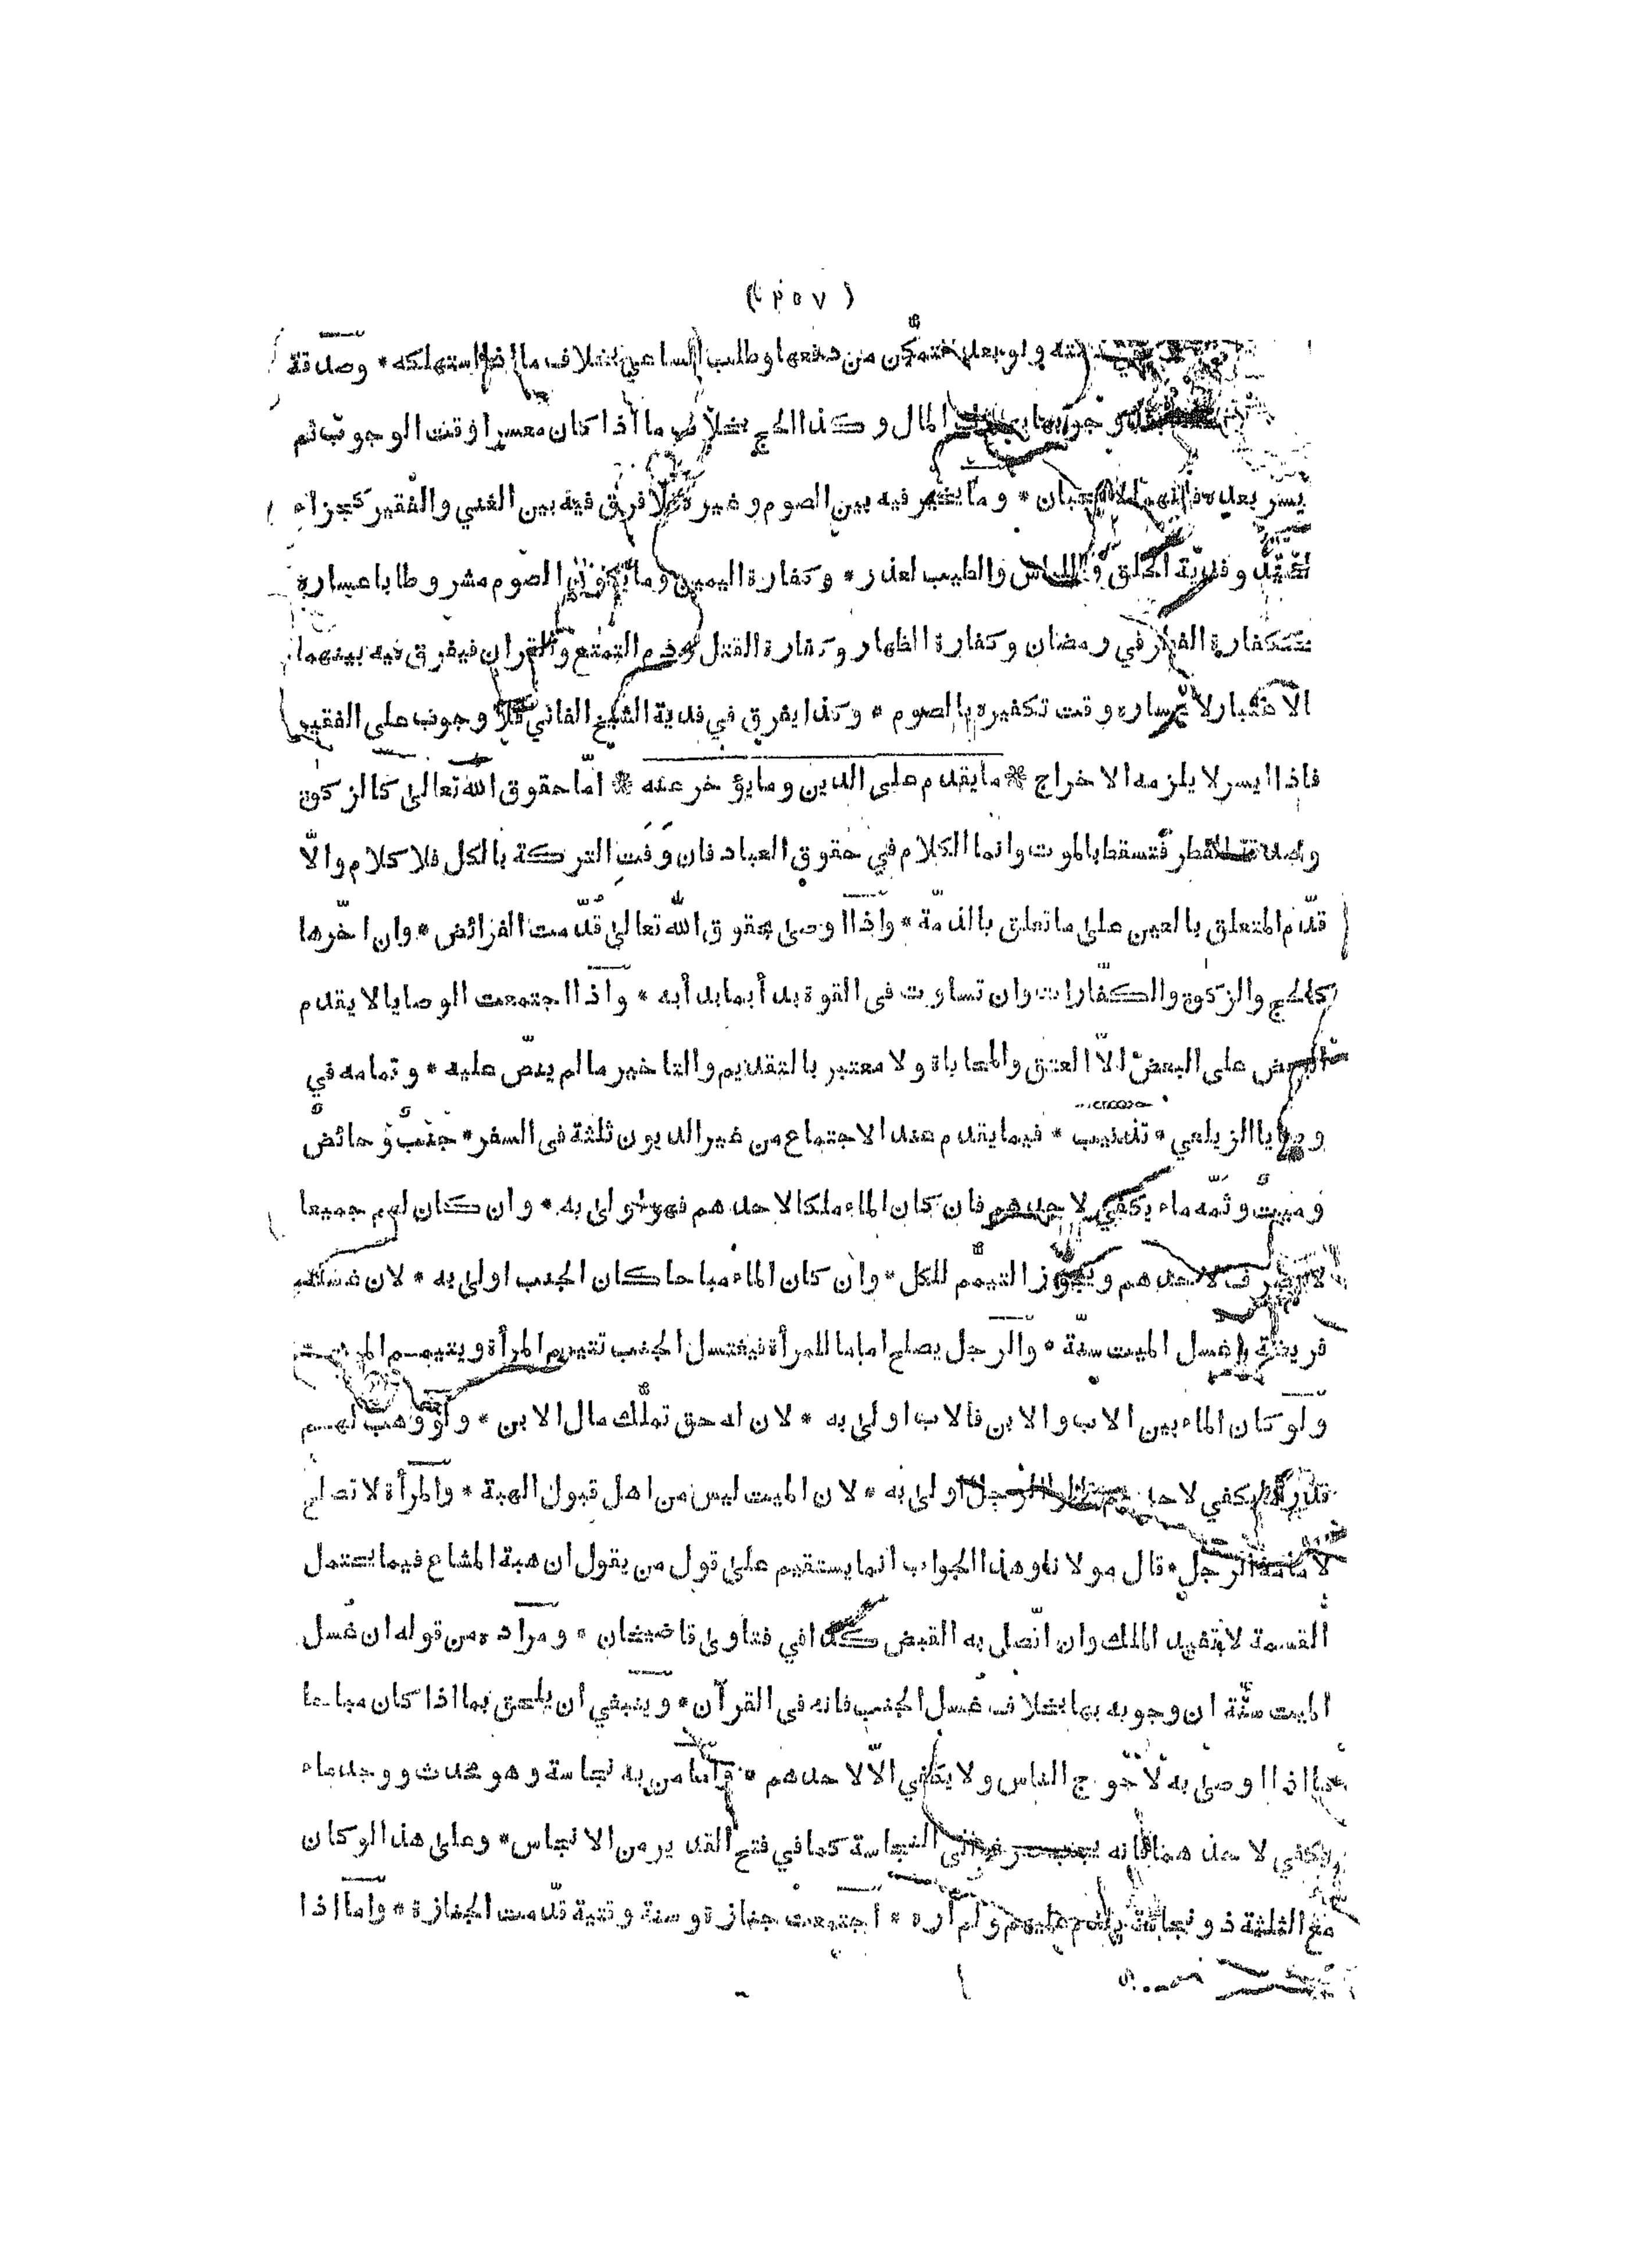 ( ٥٥٧ )
ولو بعد تمكن من دفعها وطلب الساعي بخلاف ما اذا استهلكه * وصدقة
وجوبها المال وكذا الحج بخلاف ما اذا كان معسرا وقت الوجوب ثم
يسر بعده فانهما لا يجبان * وما يخير فيه بين الصوم وغيره فلا فرق فيه بين الغني والفقير كجزاء
وفدية الحلق واللباس والطيب لعذر * وكفارة اليمين وما يكون الصوم مشروطا باعساره
ككفارة الفطر في رمضان وكفارة الظهار وكفارة القتل ودم التمتع والقران فيفرق فيه بينهما
الاعتبار لاعساره وقت تكفيره بالصوم * وكذا يفرق في فدية الشيخ الفاني فلا وجوب على الفقير
فاذا ايسر لا يلزمه الاخراج * ما يقدم على الدين وما يؤخر عنه * امّا حقوق اللّه تعالى كالزكوة
وصدقة الفطر فتسقط بالموت وانما الكلام في حقوق العباد فان وَفَت التركة بالكل فلا كلام والاّ
قدّم المتعلق بالعين على ما تعلق بالذمّة * واذا اوصى بحقوق اللّه تعالى قُدّمت الفرائض * وان اخّرها
كالحج والزكوة والكفّارات وان تساوت فى القوة بدأ بما بدأ به * واذا اجتمعت الوصايا لا يقدم
البعض على البعض الاّ العتق والمحاباة ولا معتبر بالتقديم والتاخير ما لم ينصّ عليه * وتمامه في
وصايا الزيلعي * تذنيب * فيما يقدم عند الاجتماع من غير الديون ثلثة فى السفر * جنبٌ وحائضٌ
وميتٌ وثمّه ماء يكفي لاحدهم فان كان الماء ملكا لاحدهم فهو اولى به * وان كان لهم جميعا
لا يصرف لاحدهم ويجوز التيمّم للكل * وان كان الماء مباحا كان الجنب اولى به * لان غسله
فريضة وغسل الميت سنّة * والرجل يصلح اماما للمرأة فيغتسل الجنب تتيمم المرأة ويتيمم الميت
ولو كان الماء بين الاب والابن فالاب اولى به * لان له حق تملّك مال الابن * ولو وهب لهم
قدر ما يكفي لاحدهم الرجل اولى به * لان الميت ليس من اهل قبول الهبة * والمرأة لا تصلح
لامامة الرجل * قال مولانا وهذا الجواب انما يستقيم على قول من يقول ان هبة المشاع فيما يحتمل
القسمة لا تفيد الملك وان اتّصل به القبض كذا في فتاوى قاضيخان * ومراده من قوله ان غُسل
الميت سنّة ان وجوبه بها بخلاف غُسل الجنب فانه فى القرآن * وينبغي ان يلحق بما اذا كان مباحا
ما اذا اوصى به لاَحْوَج الناس ولا يكفي الاّ لاحدهم * وامّا من به نجاسة وهو محدث ووجد ماء
يكفي لاحدهما فانه يجب صرفه الى النجاسة كما في فتح القدير من الانجاس * وعلى هذا لو كان
مع الثلثة ذو نجاسة يقدم عليهم ولم أره * اجتمعت جنازة وسنة وقتية قدّمت الجنازة * وامّا اذا